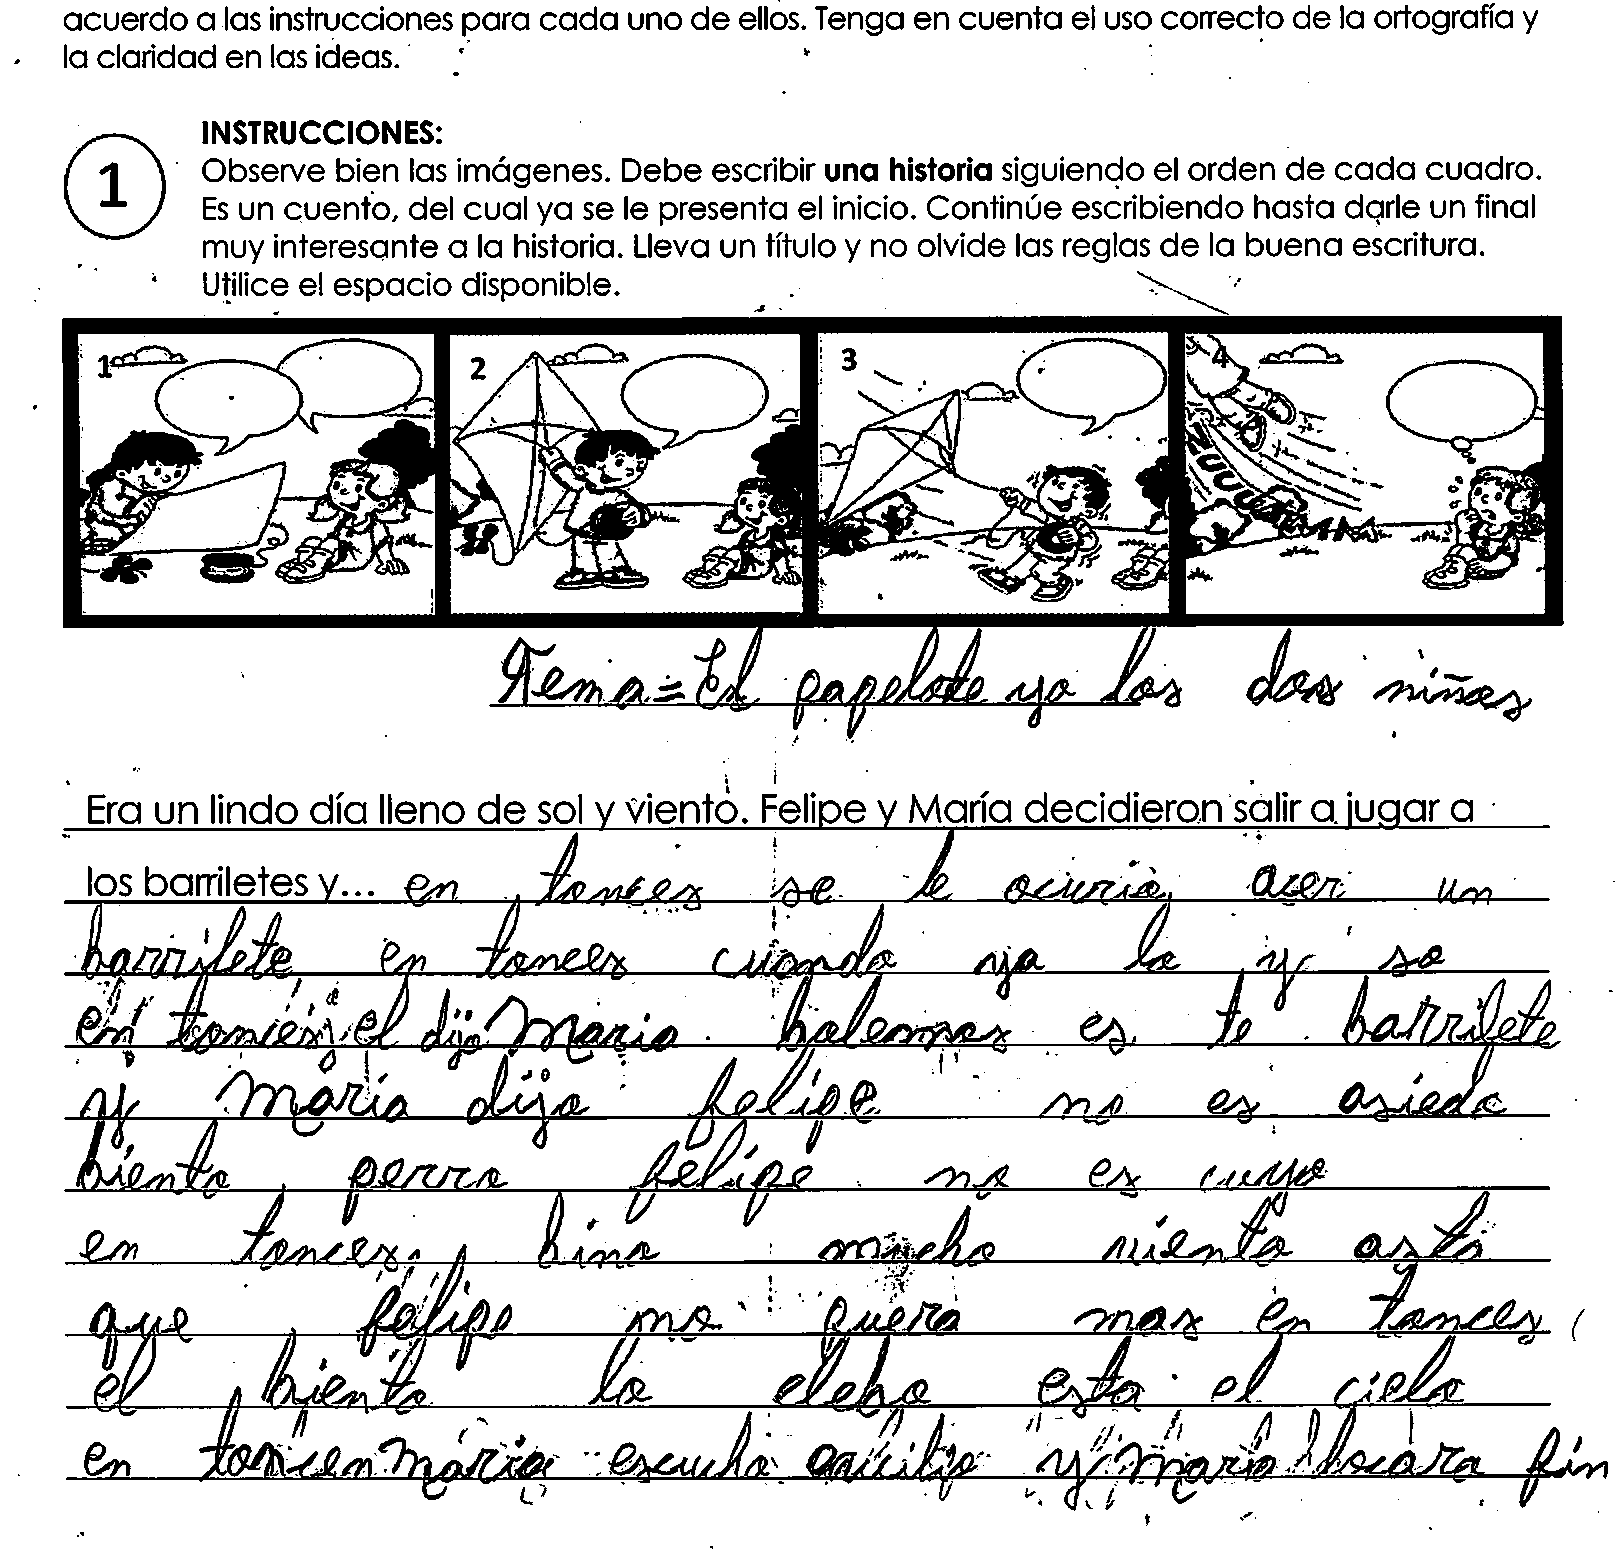 acuerdo a las instrucciones para cada uno de ellos. Tenga en cuenta el uso correcto de la ortografía y
la claridad en las ideas.
INSTRUCCIONES:
1
Observe bien las imágenes. Debe escribir una historia siguiendo el orden de cada cuadro.
Es un cuento, del cual ya se le presenta el inicio. Continúe escribiendo hasta darle un final
muy interesante a la historia. Lleva un título y no olvide las reglas de la buena escritura.
Utilice el espacio disponible.
1 2 3 4
ZUUUUM
Tema=El papelote yo los dos niños
Era un lindo día lleno de sol y viento. Felipe y María decidieron salir a jugar a
los barriletes y... en tonces se le ocurio acer un
barrilete en tonces cuando ya lo y so
en tonces el dijo Maria bolemos es te barrilete
y María dijo felipe no es asiedo
biento perro felipe no es cuyo
en tonces bino mucho viento asta
que felipe no puera mas en tonces
el biento lo elebo esta el cielo
en toncen María escucho y María fin